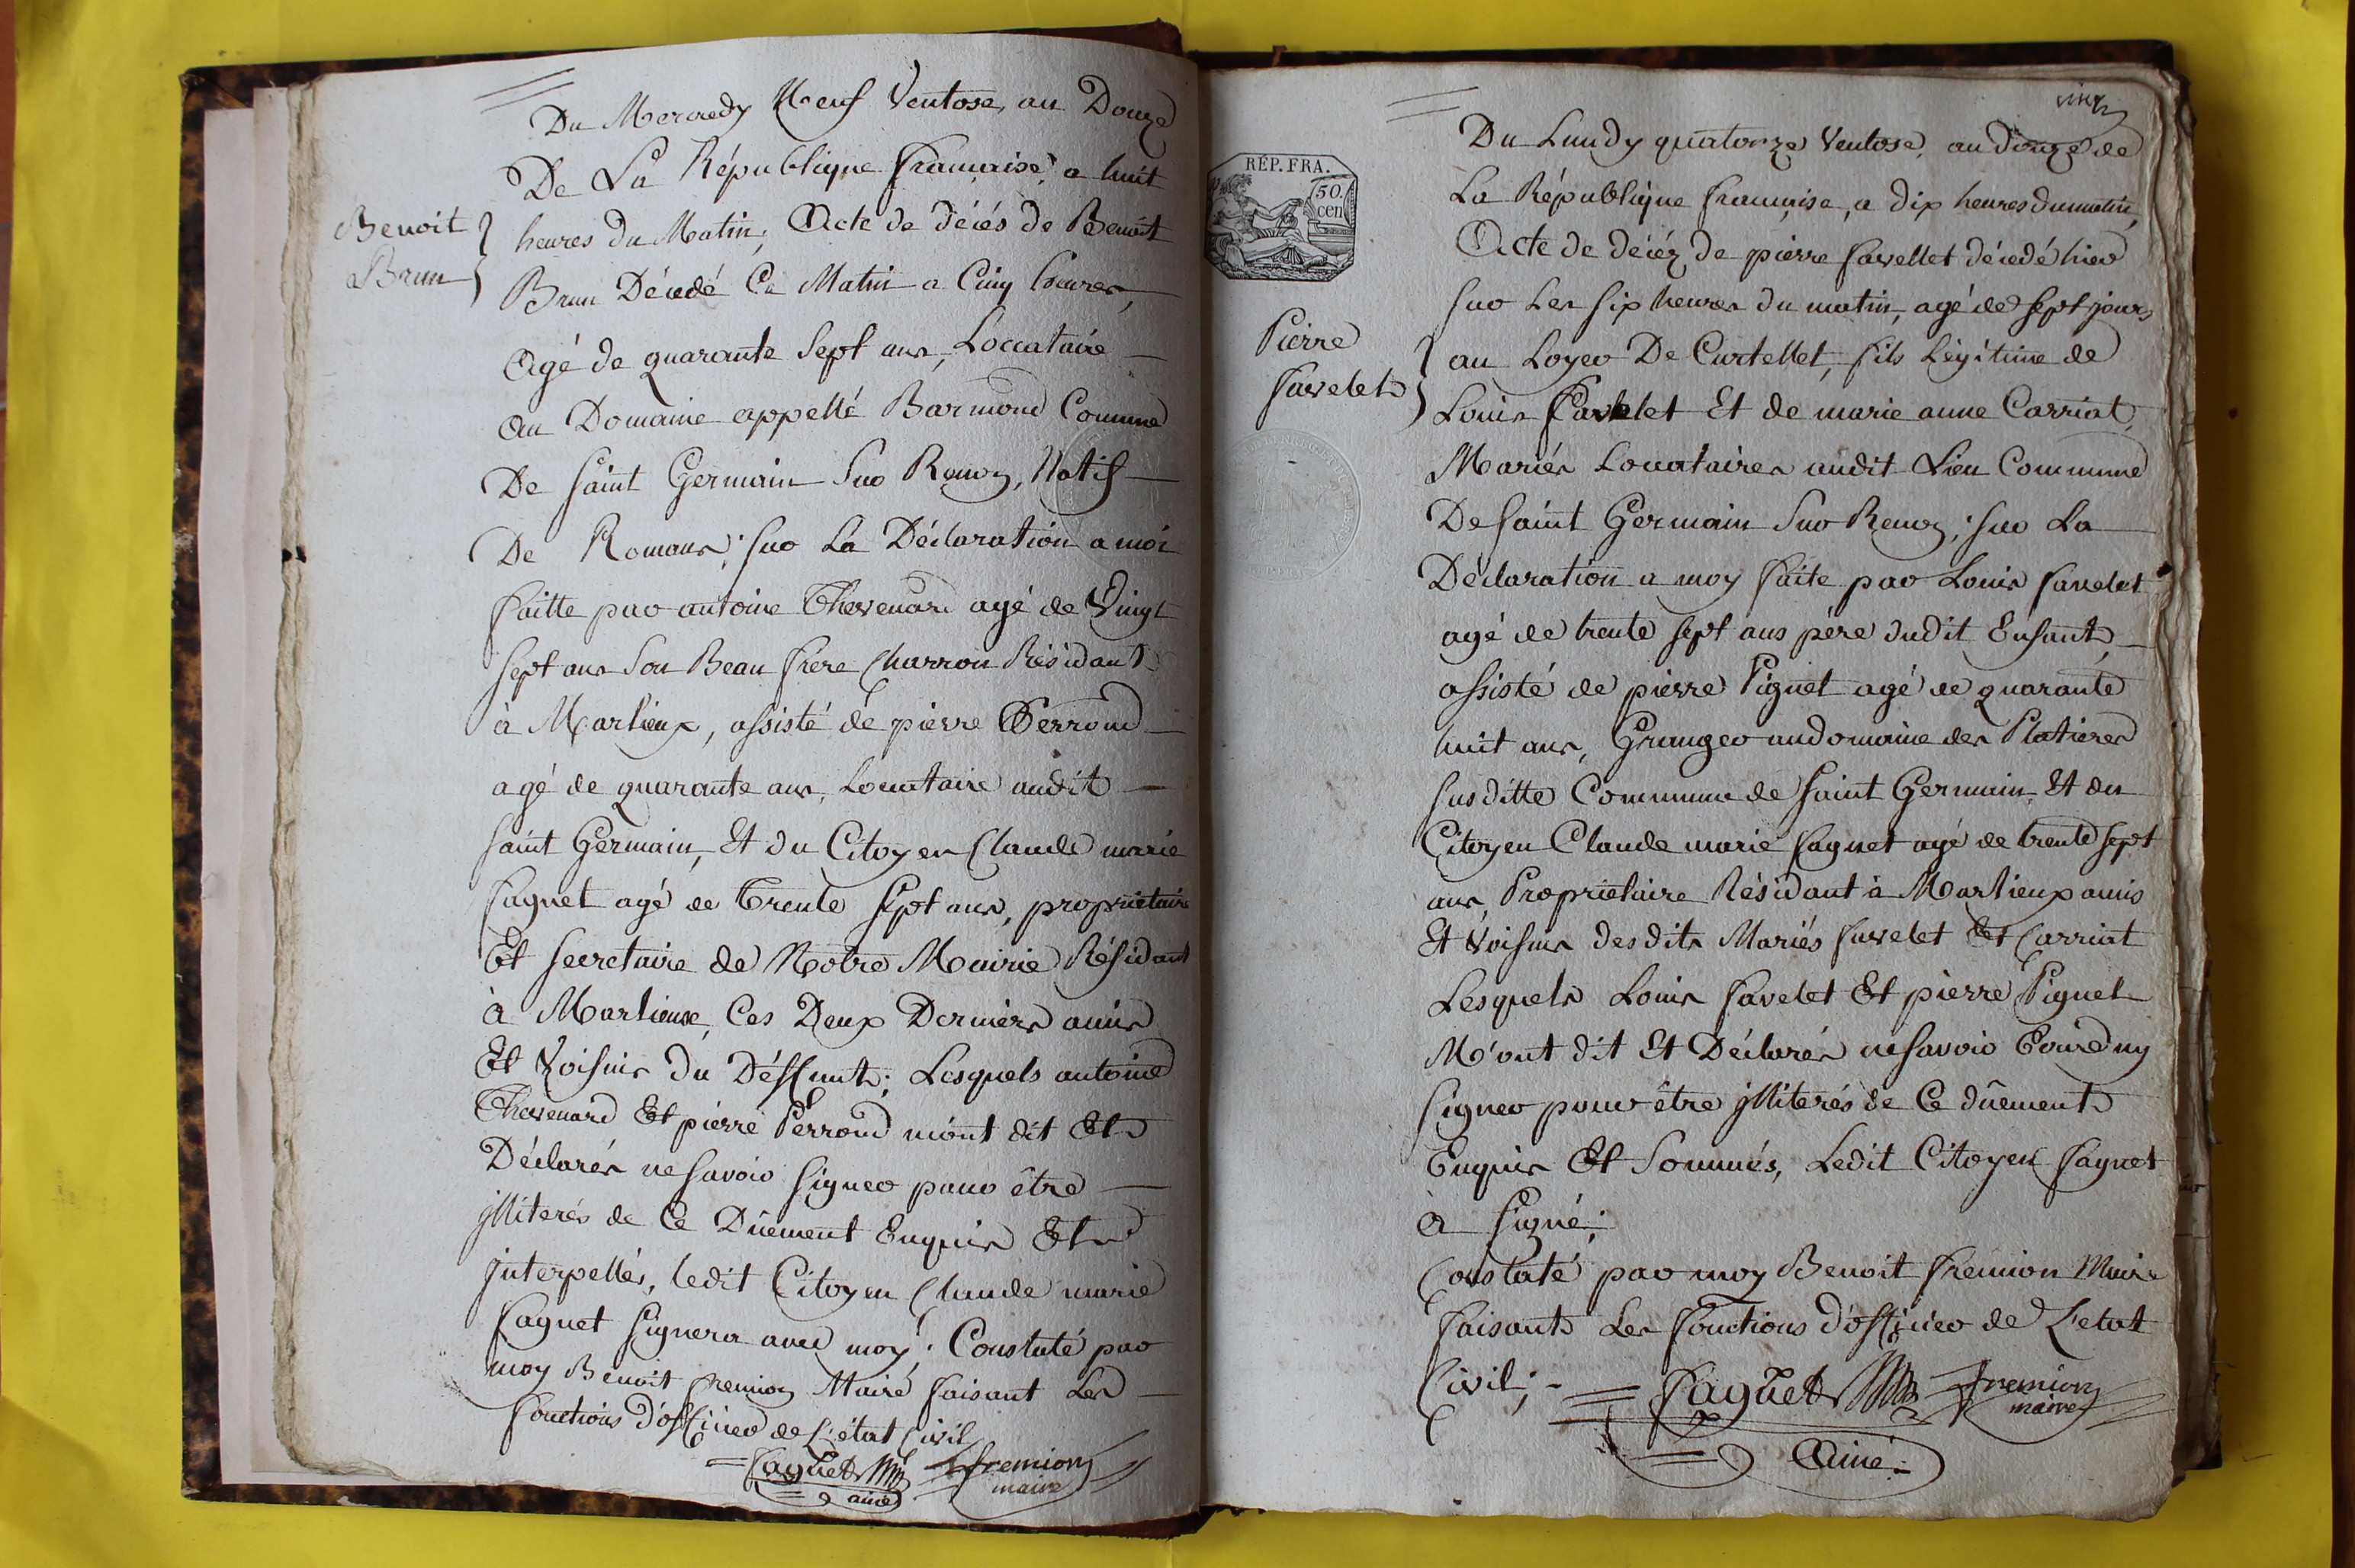 Du Mercredy Neuf Ventose, an Douze
De La République française, a huit
Benoit
Brun
heures du Matin, Acte de décés de Benoit
Brun Décédé Ce Matin a Cinq heures,
Agé de quarante Sept ans, Loccataire
Au Domaine appellé Barmond Commune
De Saint Germain Sur Renon, Natif
De Romans; sur La Déclaration a moi
faitte par antoine Thevenard agé de Vingt
sept ans Son Beau frere Charron Résidant
à Marlieux, assisté de pierre Perroud
agé de quarante ans, Locataire audit
Saint Germain, Et du Citoyen Claude marie
faguet agé de Trente Sept ans, propriétaire
Et secretaire de Notre Mairie Résidant
à Marlieux, Ces Deux Derniers amis
Et Voisins du Déffunt; Lesquels antoine
Thevenard Et pierre Perroud m'ont dit Et
Déclarés ne savoir signer pour être
illiterés de Ce Dûement Enquis Et
interpellés, ledit Citoyen Claude marie
faguet signera avec moy; Constaté par
moy Benoit fremion Maire faisant Les
fonctions d'officier de L'état Civil
faguet fremion
ainé maire
vingt
Du Lundy quatorze Ventose, an douze de
La République française, a dix heures du matin,
RÉP. FRA.
50.
cen
Acte de décéz de pierre favellet décédé hier
sur Les six heures du matin, agé de sept jours
Pierre
favelet
au Loyer De Curtellet, fils Légitime de
Louis favelet Et de marie anne Carriat,
Mariés Locataires audit Lieu Commune
De Saint Germain Sur Renon; sur La
Déclaration a moy faite par Louis favelet
agé de trente sept ans père dudit Enfant,
assisté de pierre Piguet agé de quarante
huit ans, Granger au domaine des Platieres
susditte Commune de Saint Germain, Et du
Citoyen Claude marie faguet agé de trente sept
ans, Proprietaire Résidant à Marlieux amis
Et Voisins desdits Mariés favelet Et Carriat
Lesquels Louis favelet Et pierre Piguet
M'ont dit Et Déclarés ne savoir Ecrire ny
signer pour être illiterés de Ce dûement
Enquis Et Sommés, Ledit Citoyen faguet
à signé;
Constaté par moy Benoit fremion Maire
faisant Les fonctions d'officier de L'etat
Civil;
faguet fremion
maire
Ainé